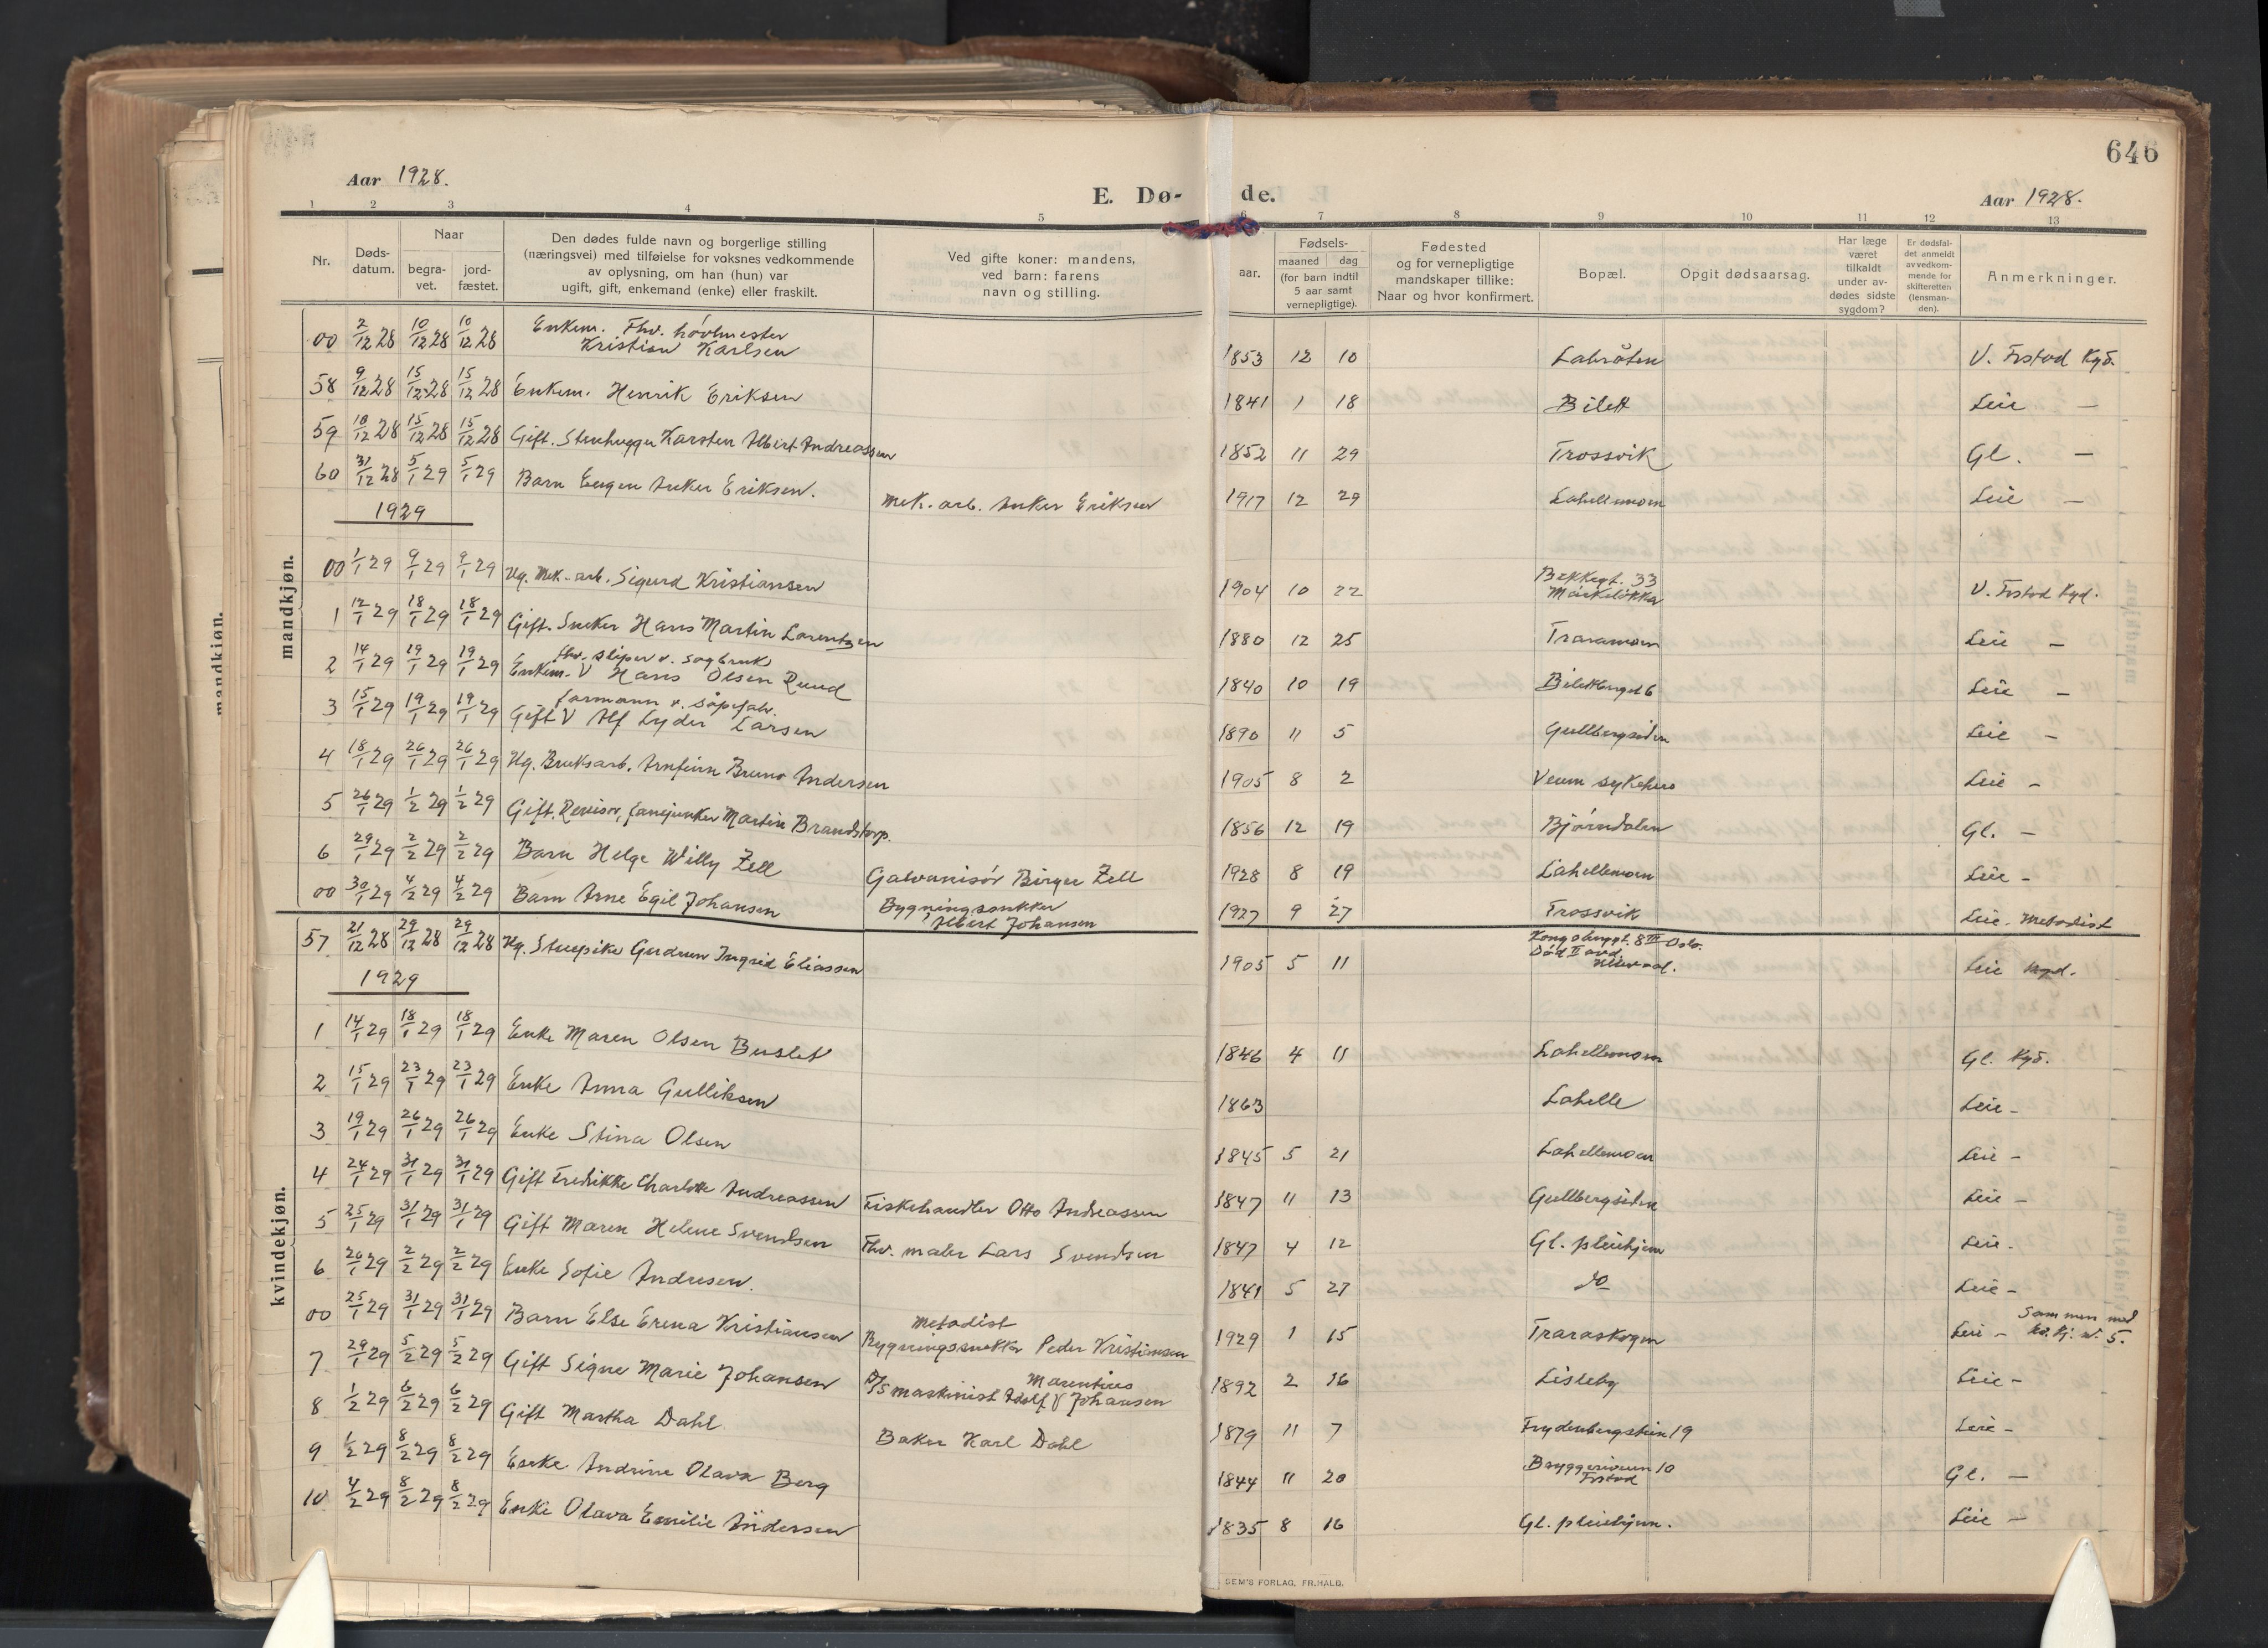 646
Aar 1928.
E. Dø- de.
Aar 1928.
1 2 3 4 5 6 7 8 9 10 11 12 13
Nr.
Døds-
datum.
Naar
begra-
vet.
jord-
fæstet.
Den dødes fulde navn og borgerlige stilling
(næringsvei) med tilføielse for voksnes vedkommende
av oplysning, om han (hun) var
ugift, gift, enkemand (enke) eller fraskilt.
Ved gifte koner: mandens,
ved barn: farens
navn og stilling.
Fødsels-
aar.
maaned
dag
(for barn indtil
5 aar samt
vernepligtige).
Fødested
og for vernepligtige
mandskaper tillike:
Naar og hvor konfirmert.
Bopæl.
Opgit dødsaarsag.
Har læge
været
tilkaldt
under av-
dødes sidste
sygdom?
Er dødsfal-
det anmeldt
av vedkom-
mende for
skifteretten
(lensman-
den).
Anmerkninger.
mandkjøn.
mandkjøn.
00 2/12 28 10/12 28 10/12 28 Enkem. Fhv. høvlmester
Kristian Karlsen 1853 12 10 Labråten V. Frstad Kgd.
58 9/12 28 15/12 28 15/12 28 Enkem. Henrik Eriksen 1841 1 18 Bilett Leie —
59 10/12 28 15/12 28 15/12 28 Gift. Stenhugger Karsten Albert Andreassen 1852 11 29 Trossvik Gl. —
60 31/12 28 5/1 29 5/1 29 Barn Eugen Anker Eriksen. Mek. arb. Anker Eriksen 1917 12 29 Lahellemoen Leie —
1929
00 1/1 29 9/1 29 9/1 29 Ug. Mek. arb. Sigurd Kristiansen 1904 10 22 Bekkegt. 33
V. Frstad Kgd.
1 12/1 29 18/1 29 18/1 29 Gift. Sneker Hans Martin Lorentzen 1880 12 25 Traramoen Leie —
2 14/1 29 19/1 29 19/1 29 fhv. sliper v. sagbruk
Enkem. V Hans Olsen Ruud 1840 10 19 Bilettbergst 6 Leie —
3 15/1 29 19/1 29 19/1 29 formann v. såpefabr.
Gift V Alf Lyder Larsen 1890 11 5 Gullbergsiden Leie —
4 18/1 29 26/1 29 26/1 29 Ug. Bruksarb. Arnfinn Bruno Andersen 1905 8 2 Veum sykehus Leie —
5 26/1 29 1/2 29 1/2 29 Gift. Revisor, fanejunker Martin Brandstorp. 1856 12 19 Bjørndalen Gl. —
6 29/1 29 2/2 29 2/2 29 Barn Helge Willy Zell Galvanisør Birger Zell 1928 8 19 Lahellemoen Leie —
00 30/1 29 4/2 29 4/2 29 Barn Arne Egil Johansen Bygningssnekker
Albert Johansen 1927 9 27 Trossvik Leie - Metodist
kvindekjøn.
57 21/12 28 29/12 28 29/12 28 Ug. Stuepike Gudrun Ingrid Eliassen 1905 5 11 Kongsberggt. 8 III Oslo.
Død II avd.
Ullevaal. Leie Kgd.
1929
1 14/1 29 18/1 29 18/1 29 Enke Maren Olsen Buslet 1846 4 11 Lahellemoen Gl. Kgd.
2 15/1 29 23/1 29 23/1 29 Enke Anna Gulliksen 1863 Lahelle Leie —
3 19/1 29 26/1 29 26/1 29 Enke Stina Olsen 1845 5 21 Lahellemoen Leie —
4 24/1 29 31/1 29 31/1 29 Gift Fredrikke Charlotte Andreassen Fiskehandler Otto Andreassen 1847 11 13 Gullbergsiden Leie —
5 25/1 29 31/1 29 31/1 29 Gift Maren Helene Svendsen Fhv. maler Lars Svendsen 1847 4 12 Gl. pleiehjem Leie.
6 26/1 29 2/2 29 2/2 29 Enke Sofie Andresen. 1841 5 27 do Leie —
00 25/1 29 31/1 29 31/1 29 Barn Else Erena Kristiansen Metodist
Bygningssnekker Peder Kristiansen 1929 1 15 Traraskogen Leie — Sammen med
kv. kj. nr. 5.
7 29/1 29 5/2 29 5/2 29 Gift Signe Marie Johansen Marentius
D/S maskinist Adolf V Johansen 1892 2 16 Lisleby Leie —
8 1/2 29 6/2 29 6/2 29 Gift Martha Dahl Baker Karl Dahl 1879 11 7 Frydenbergstien 19 Leie —
9 1/2 29 8/2 29 8/2 29 Enke Andrine Olava Berg 1844 11 20 Bryggeriveien 10
Frstad Gl. —
10 4/2 29 8/2 29 8/2 29 Enke Olava Emilie Andersen 1835 8 16 Gl. pleiehjem. Leie —
SEM'S FORLAG, FR.HALD.